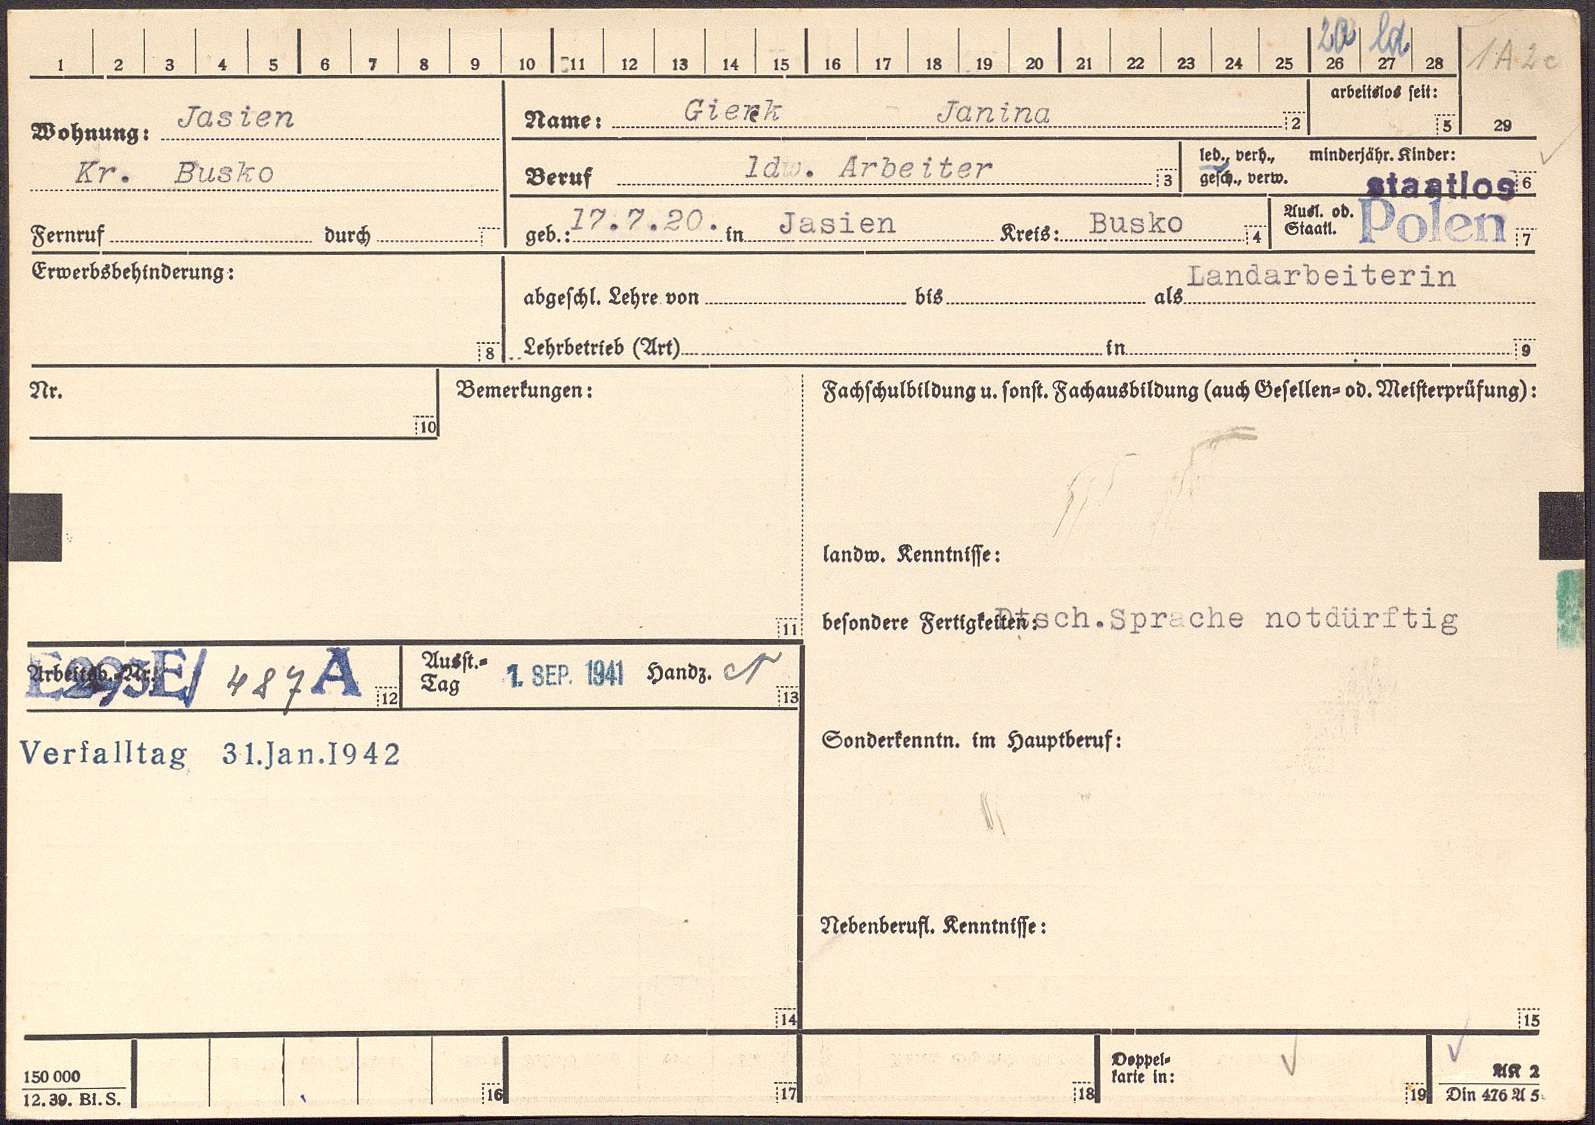 1 2 3 4 5 6 7 8 9 10 11 12 13 14 15 16 17 18 19 20 21 22 23 24 25 26 27 28
1A2c
Wohnung: Jasien
Kr. Busko
Fernruf durch
Name: Gierk Janina 2
arbeitslos seit: 5
29
Beruf ldw. Arbeiter 3
led., verh., gesch., verw.
minderjähr. Kinder: 6
staatlos
geb.: 17.7.20. in Jasien Kreis: Busko 4
Ausl. od. Staatl. Polen 7
Erwerbsbehinderung:
8
abgeschl. Lehre von bis als Landarbeiterin
Lehrbetrieb (Art) in 9
Nr.
10
Bemerkungen:
11
Fachschulbildung u. sonst. Fachausbildung (auch Gesellen- od. Meisterprüfung):
landw. Kenntnisse:
besondere Fertigkeiten: Dtsch.Sprache notdürftig
Arbeitsb.-Nr.: E/ 487 A 12
Ausst.-Tag 1. SEP. 1941 Handz. 13
Verfalltag 31.Jan.1942
Sonderkenntn. im Hauptberuf:
Nebenberufl. Kenntnisse:
14
15
150 000
12. 39. Bl. S.
16
17
18
Doppel-
karte in:
19
AK 2
Din 476 A 5